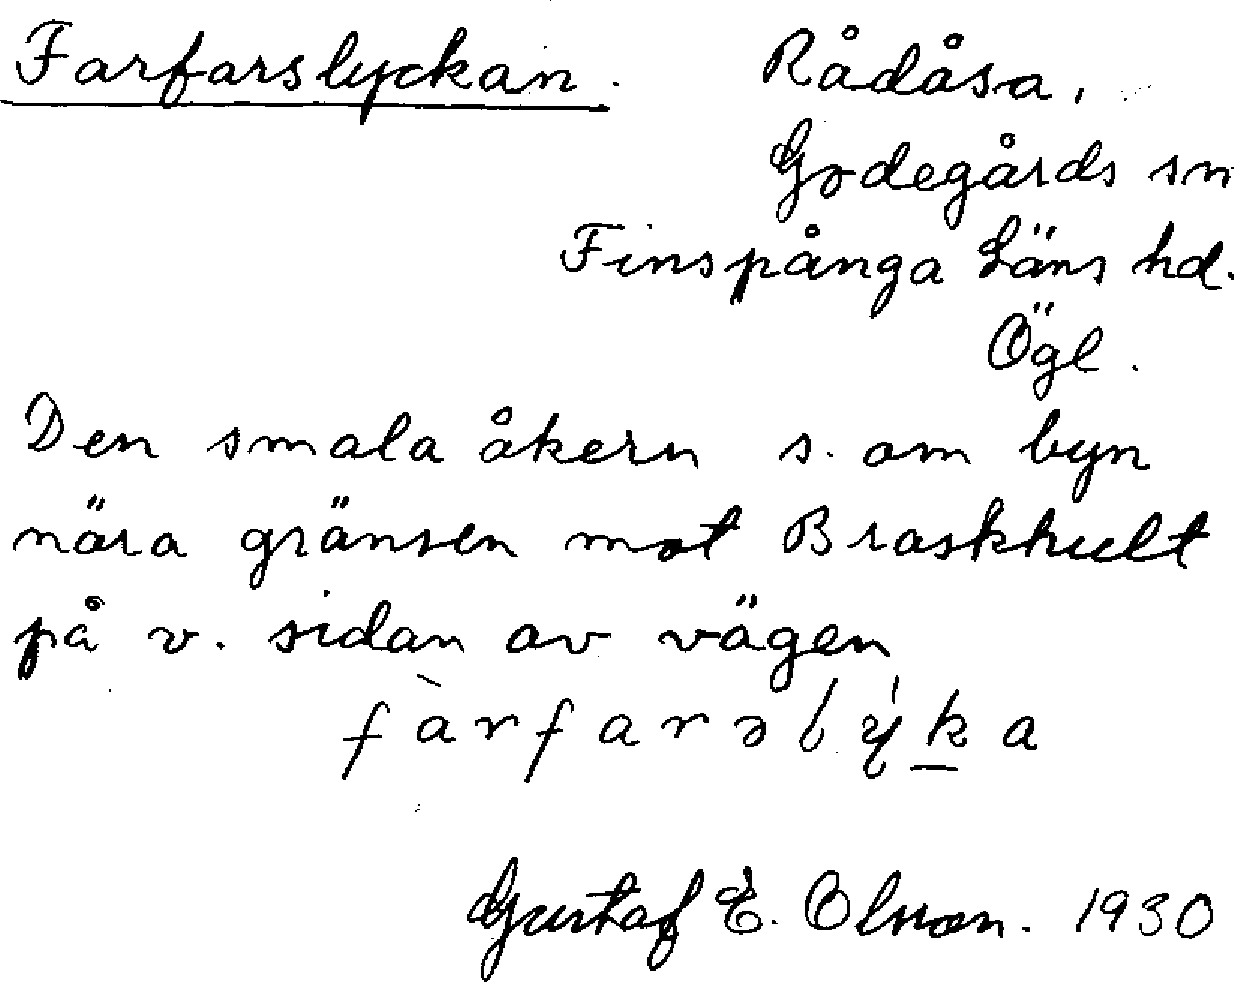 Farfarslyckan. Rådåsa,
Godegårds sn
Finspånga Läns hd.
Ögl.
Den smala åkern s. om byn
nära gränsen mot Braskhult
på v. sidan av vägen
Gustaf E. Olsson. 1930